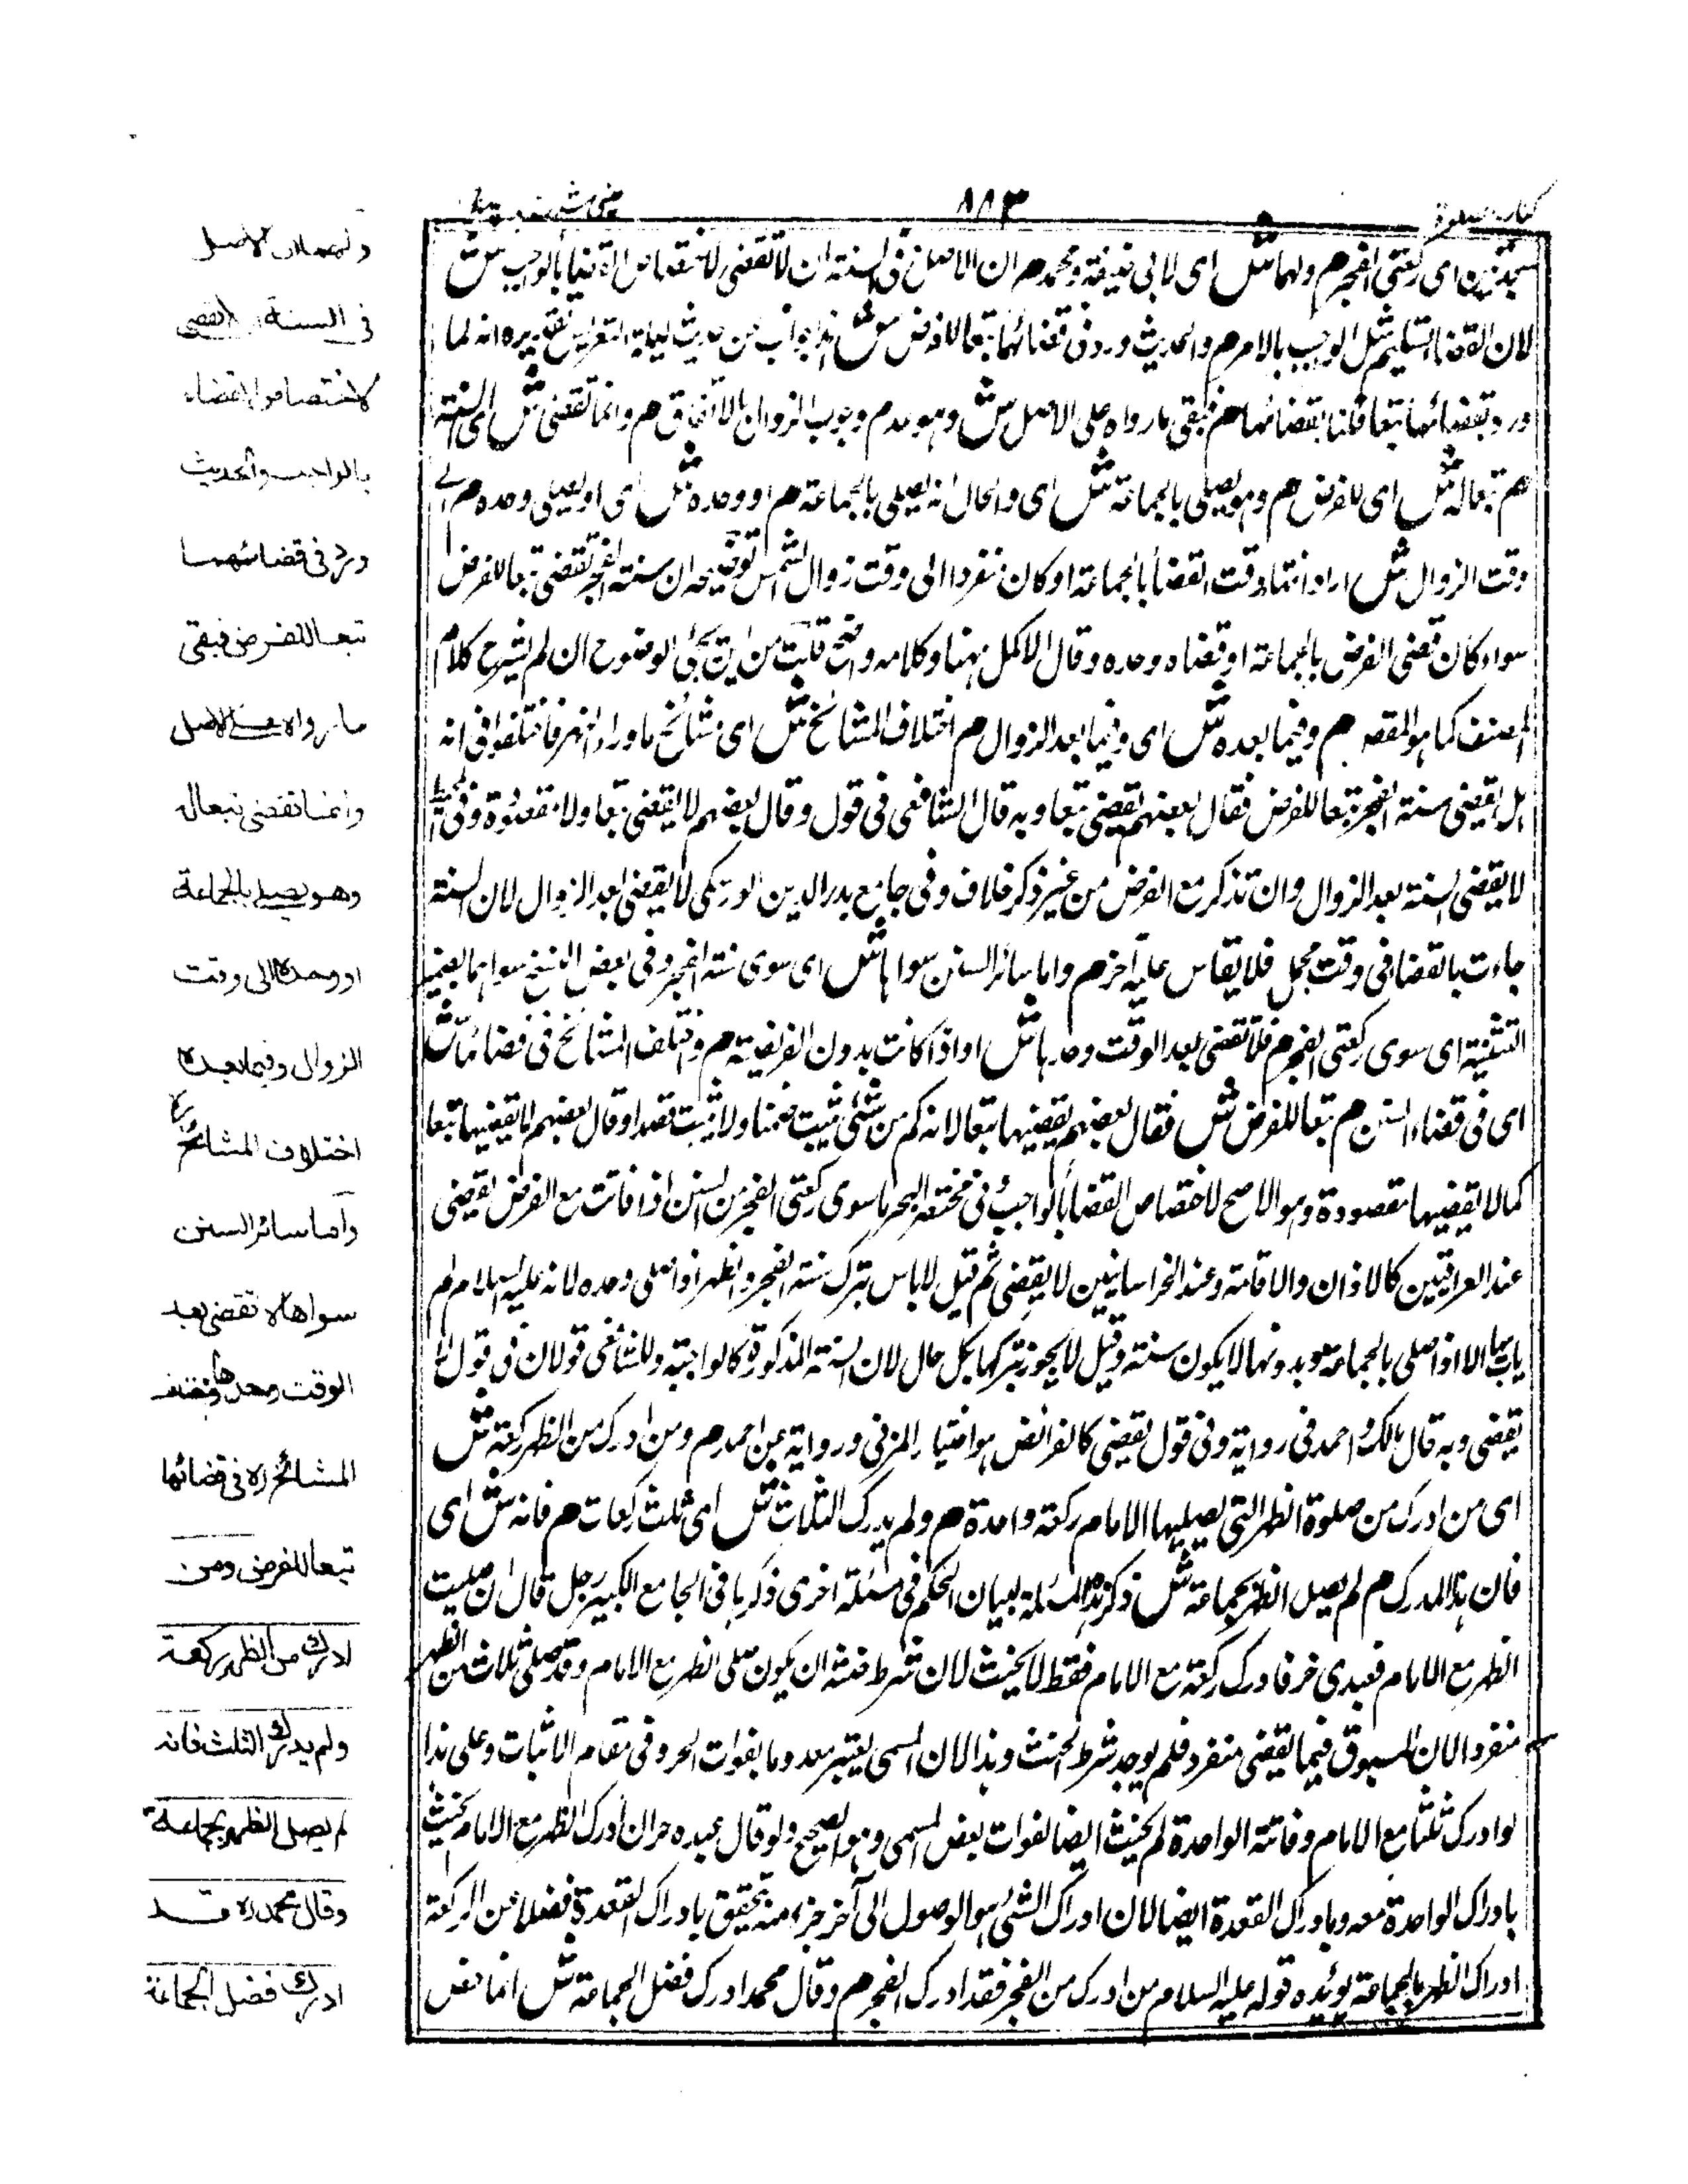 كتاب الصلوة
٨٨٣
سجدتين اى ركعتى الفجر م ولهما ش اى لابى حنيفة ومحمد م ان الاصل فى السنة ان لا تقضى لاختصاص القضاء بالواجب ش
لان القضاء تسليم مثل الواجب بالامر م والحديث ورد فى قضائها تبعا للفرض ش هذا جواب عن حديث ليلة التعريس تقريره انه لما
ورد بقضائها تبعا قلنا بقضائها م فبقى ما رواه على الاصل ش وهو عدم وجوب الزوان بالاتفاق م وانما تقضى ش اى السنة
م تبعا له ش اى للفرض م وهو يصلى بالجماعة ش اى والحال انه يصلى بالجماعة م او وحده ش اى او يصلى وحده م الى
وقت الزوال ش اراد انتهاء وقت القضاء بالجماعة او كان منفردا الى وقت زوال الشمس توضيحه ان سنة الفجر تقضى تبعا للفرض
سواء كان قضى الفرض بالجماعة او قضاه وحده وقال الاكمل ههنا وكلامه واضح قلت من اين يجئ الوضوح ان لم يشرح كلام
المصنف كما هو المقصد م وفيما بعده ش اى وفيما بعد الزوال م اختلاف المشائخ ش اى مشائخ ما وراء النهر فاختلفوا فى انه
هل يقضى سنة الفجر تبعا للفرض فقال بعضهم يقضى تبعا وبه قال الشافعى فى قول وقال بعضهم لا يقضى تبعا ولا مقصودة وفى المحيط
لا يقضى السنة بعد الزوال وان تذكر مع الفرض من غير ذكر خلاف وفى جامع بدر الدين الورسكى لا يقضى بعد الزوال لان السنة
جاءت بالقضا فى وقت مجمل فلا يقاس عليه آخر م واما سائر السنن سواها ش اى سوى سنة الفجر وفى بعض النسخ سواهما بضمير
التثنية اى سوى ركعتى الفجر م فلا تقضى بعد الوقت وحدها ش او اذا كانت بدون الفريضة م واختلف المشائخ فى قضائها ش
اى فى قضاء السنن م تبعا للفرض ش فقال بعضهم يقضيها تبعا لانه كم من شئى يثبت ضمنا ولا يثبت قصدا وقال بعضهم لا يقضيها تبعا
كما لا يقضيها مقصودة وهو الاصح لاختصاص القضا بالواجب وفى مختصر البحر ما سوى ركعتى الفجر من السنن اذا فاتت مع الفرض يقضى
عند العراقيين كالاذان والاقامة وعند الخراسانيين لا يقضى ثم قيل لا باس بترك سنة الفجر والظهر اذا صلى وحده لانه عليه السلام لم
يات بها الا اذا صلى بالجماعة وبدونها لا يكون سنة وقيل لا يجوز تركها بكل حال لان السنة المذكورة كالواجبة وللشافعى قولان فى قول لا
يقضى وبه قال مالك واحمد فى رواية وفى قول يقضى كالفرائض هو اختيار المزنى ورواية عن احمد م ومن ادرك من الظهر ركعة ش
اى من ادرك من صلوة الظهر التى يصليها الامام ركعة واحدة م ولم يدرك الثلاث ش اى ثلث ركعات م فانه ش اى
فان هذا المدرك م لم يصل الظهر بجماعة ش ذكر هذه المسئلة لبيان الحكم فى مسئلة اخرى ذكرها فى الجامع الكبير رجل قال ان صليت
الظهر مع الامام فعبدى حر فادرك ركعة مع الامام فقط لا يحنث لان شرط حنثه ان يكون صلى الظهر مع الامام وقد صلى ثلاث من الظهر
منفردا لان المسبوق فيما يقضى منفرد فلم يوجد شرط الحنث وهذا لان المسمى يعتبر معدوما بفوات الجزء فى مقام الاثبات وعلى هذا
لو ادرك ثلثا مع الامام وفاتته الواحدة لم يحنث ايضا لفوات بعض المسمى وهو الصحيح ولو قال عبده حر ان ادرك الظهر مع الامام يحنث
بادراك الواحدة معه وبادراك القعدة ايضا لان ادراك الشئ هو الوصول الى آخر جزء منه تحقيق بادراك القعدة فضلا عن الركعة
ادراك الظهر بالجماعة يؤيده قوله عليه السلام من ادرك من الفجر فقد ادرك الفجر م وقال محمد ادرك فضل الجماعة ش انما خص
ولهما ان الاصل
فى السنة ان لا تقضى
لاختصاص القضاء
بالواجب والحديث
ورد فى قضائهما
تبعا للفرض فبقى
ما رواه على الاصل
وانما تقضى تبعا له
وهو يصلى بالجماعة
او وحده الى وقت
الزوال وفيما بعده
اختلاف المشائخ
واما سائر السنن
سواها لا تقضى بعد
الوقت وحدها واختلف
المشائخ ره فى قضائها
تبعا للفرض ومن
ادرك من الظهر ركعة
ولم يدرك الثلث فانه
لم يصل الظهر بجماعة
وقال محمد ره قد
ادرك فضل الجماعة